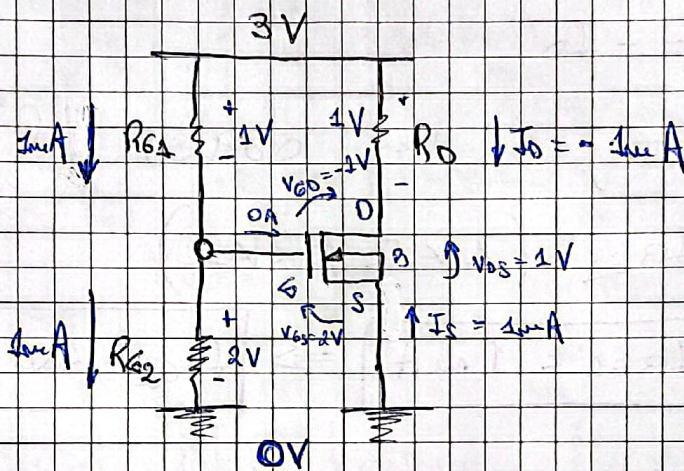 3 V
1mA
RG1
+
1V
-
1V
+
-
RD
ID = - 1mA
VGD=-1V
0A
D
G
B
S
VDS = 1V
VGS=2V
IS = 1mA
1mA
RG2
+
2V
-
0V